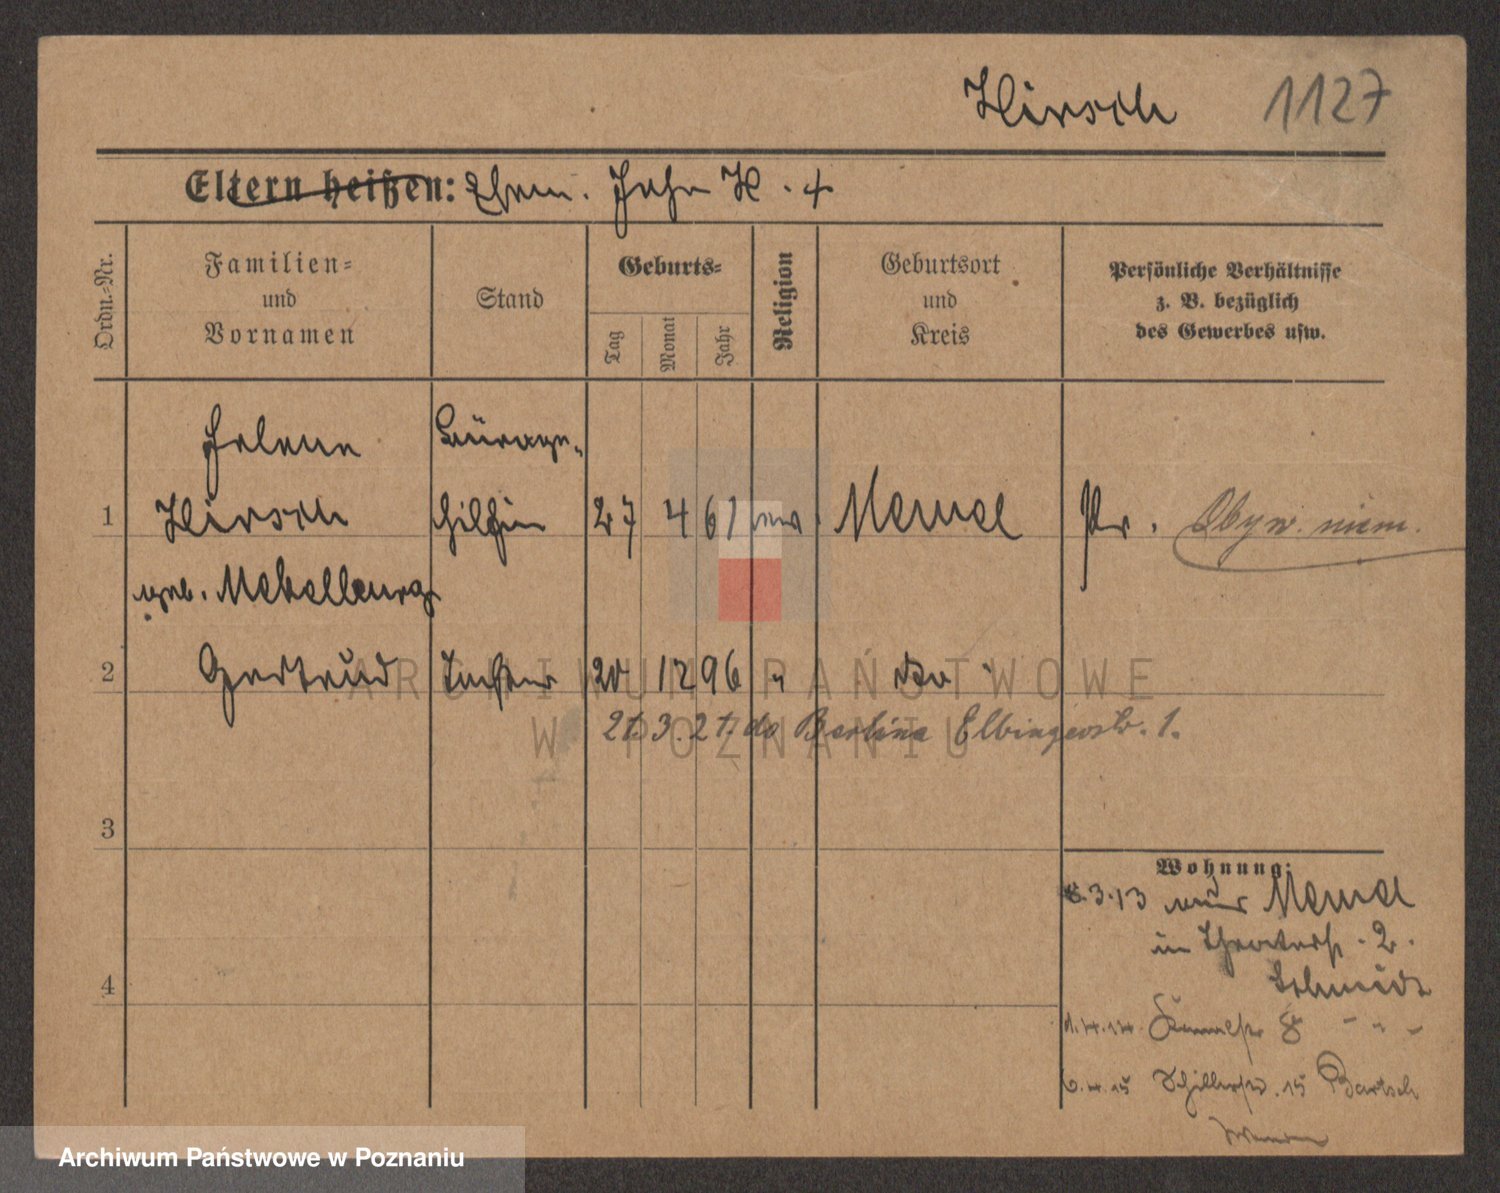 Hirsch 1127
Eltern heißen: Ehem. John H. +
Ordn.-Nr.
Familien-
und
Vornamen
Stand
Geburts-
Tag
Monat
Jahr
Religion
Geburtsort
und
Kreis
Persönliche Verhältnisse
z. B. bezüglich
des Gewerbes usw.
Helene
1 Hirsch 27 4 61 Memel Pr. Obyw. niem.
geb.
2 Gertrud Tochter 20 12 96 " do
21.3.21. do Berlina Elbingerstr. 1.
3
4
Wohnung:
8.3.13 Memel
in Theaterstr. 2.
Schmidt
1.4.14. 8 - " -
6.4.15 Schillerstr. 15 Bartsch
ARCHIWUM PAŃSTWOWE
W POZNANIU
Archiwum Państwowe w Poznaniu